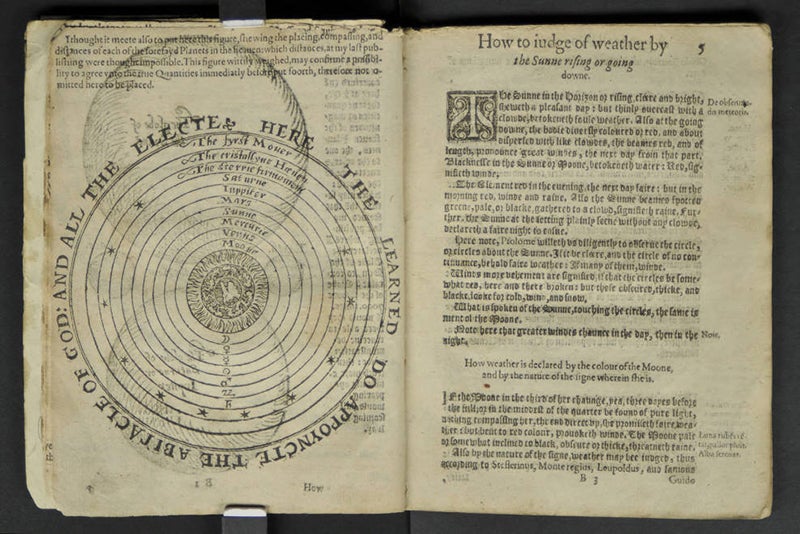 I thought it meete also to put here this figure, shewing the placing, compassing, and
distances of each of the foresayd Planets in the heauen: which distances, at my last pub-
lishing were thought impossible. This figure wittily weighed, may confirme a possibi-
lity to agree vnto the true Quantities immediatly before put foorth, therefore not o-
mitted here to be placed.
THE LEARNED DO APPOYNCTE THE ABITACLE OF GOD: AND ALL THE ELECTE HERE
The fyrst Mouer
The cristallyne Heauen
The sterrie firmament
Saturne
Iuppiter
Mars
Sunne
Mercurie
Venus
Moone
B 2
How
How to iudge of weather by
5
the Sunne rising or going
downe.
THe Sunne in the Horizon or rising, cleare and bright,
sheweth a pleasant day: but thinly ouercast with a
clowde, betokeneth foule weather. Also at the going
downe, the bodie diuersly coloured or red, and about
dispersed with like clowdes, the beames red, and of
length, pronounce great windes, the next day from that part.
Blacknesse in the Sunne or Moone, betokeneth water: Red, sig-
nifieth winde.
The Element red in the euening, the next day faire: but in the
morning red, winde and raine. Also the Sunne beames spotted
greene, pale, or blacke, gathered to a clowd, signifieth raine. Fur-
ther, the Sunne at the setting plainly seene without any clowde,
declareth a faire night to ensue.
Here note, Ptolome willeth vs diligently to obserue the circle,
or circles about the Sunne. If it be cleare, and the circle of no con-
tinuance, behold faire weather: If many of them, winde.
Windes more vehement are signified, if that the circles be some-
what red, here and there broken: but these obscured, thicke, and
blacke, looke for cold, wind, and snow.
What is spoken of the Sunne, touching the circles, the same is
ment of the Moone.
Note here that greater windes chaunce in the day, then in the
night.
Note.
How weather is declared by the colour of the Moone,
and by the nature of the signe wherein she is.
IF the Moone in the third of her chaunge, yea, three dayes before
the full, or in the middest of the quarter be found of pure light,
nothing compassing her, the end direct vp, she promiseth faire wea-
ther: but bent to red colour, prouoketh winde. The Moone pale
or somewhat inclined to black, obscure or thicke, threatneth raine.
Also by the nature of the signe, weather may bee iudged, thus
according to Stoflerinus, Monte regius, Leupoldus, and famous
B 3
Guido